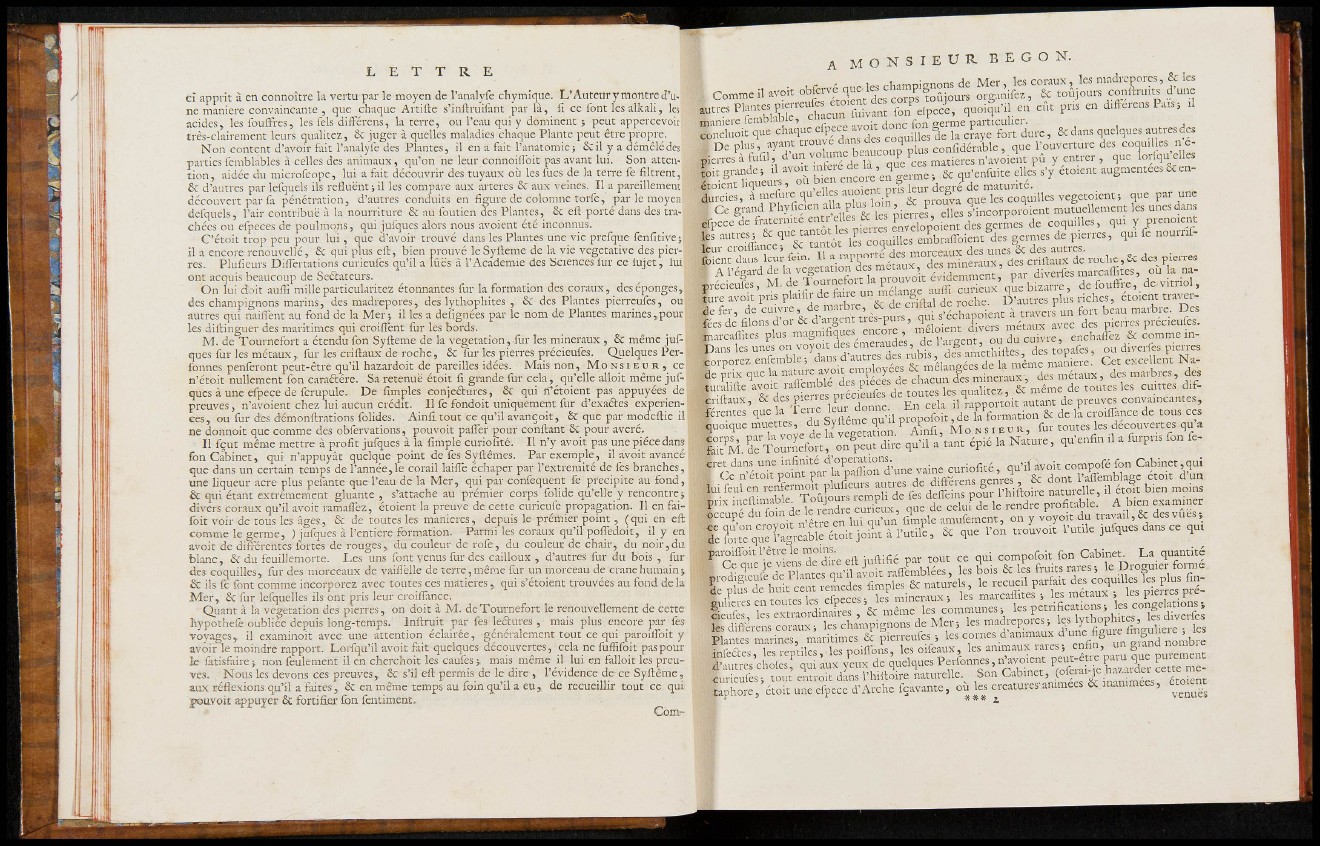 LETTRE
ci apprit à en connoître la vertu par le moyen de l'analyse chymique. L'Auteur y montre d'u-
ne maniere convaincante, que chaque Artiste s'instruisant par là, si ce sont les alkali, les
acides, les souffres, les sels différens, la terre, ou l'eau qui y dominent; peut appercevoir
très-clairement leurs qualitez, & juger à quelles maladies chaque Plante peut être propre.
Non content d'avoir fait l'analyse des Plantes, il en a fait l'anatomie; & il y a démêlé des
parties semblables à celles des animaux, qu'on ne leur connoissoit pas avant lui. Son atten-
tion, aidée du microscope, lui a fait découvrir des tuyaux où les sucs de la terre se filtrent,
& d'autres par lesquels ils refluënt; il les compare aux arteres & aux veines. Il a pareillement
découvert par sa pénétration, d'autres conduits en figure de colomne torse, par le moyen
desquels, l'air contribuë à la nourriture & au soutien des Plantes, & est porté dans des tra-
chées ou especes de poulmons, qui jusques alors nous avoient été inconnus.
C'étoit trop peu pour lui, que d'avoir trouvé dans les Plantes une vie presque sensitive;
il a encore renouvellé, & qui plus est, bien prouvé le Systeme de la vie vegetative des pier-
res. Plusieurs Dissertations curieuses qu'il a lûës à l'Academie des Sciences sur ce sujet, lui
ont acquis beaucoup de Sectateurs.
On lui doit aussi mille particularitez étonnantes sur la formation des coraux, des éponges,
des champignons marins, des madrepores, des lythophites, & des Plantes pierreuses, ou
autres qui naissent au fond de la Mer; il les a designées par le nom de Plantes marines, pour
les distinguer des maritimes qui croissent sur les bords.
M. de Tournefort a étendu son Systeme de la vegetation, sur les mineraux, & même jus-
ques sur les métaux, sur les cristaux de roche, & sur les pierres précieuses. Quelques Per-
sonnes penseront peut-être qu'il hazardoit de pareilles idées. Mais non, MONSIEUR, ce
n'étoit nullement son caractère. Sa retenuë étoit si grande sur cela, qu'elle alloit même jus-
ques à une espece de scrupule. De simples conjectures, & qui n'étoient pas appuyées de
preuves, n'avoient chez lui aucun crédit. Il se fondoit uniquement sur d'exactes experien-
ces, ou sur des démonstrations solides. Ainsi tout ce qu'il avançoit, & que par modestie il
ne donnoit que comme des observations, pouvoit passer pour constant & pour averé.
Il sçut même mettre à profit jusques à la simple curiosité. Il n'y avoit pas une piéce dans
son Cabinet, qui n'appuyât quelque point de ses Systêmes. Par exemple, il avoit avancé
que dans un certain temps de l'année, le corail laisse échaper par l'extremité de ses branches,
une liqueur acre plus pesante que l'eau de la Mer, qui par consequent se precipite au fond,
& qui étant extrêmement gluante, s'attache au prémier corps solide qu'elle y rencontre;
divers coraux qu'il avoit ramassez, étoient la preuve de cette curieuse propagation. Il en fai-
soit voir de tous les âges, & de toutes les manieres, depuis le prémier point, (qui en est
comme le germe,) jusques à l'entiere formation. Parmi les coraux qu'il possedoit, il y en
avoit de différentes sortes de rouges, du couleur de rose, du couleur de chair, du noir, du
blanc, & du feuillemorte. Les uns sont venus sur des cailloux, d'autres sur du bois, sur
des coquilles, sur des morceaux de vaisselle de terre, même sur un morceau de crane humain;
& ils se sont comme incorporez avec toutes ces matieres, qui s'étoient trouvées au fond de la
Mer, & sur lesquelles ils ont pris leur croissance.
Quant à la vegetation des pierres, on doit à M. de Tournefort le renouvellement de cette
hypothese oubliée depuis long-temps. Instruit par ses lectures, mais plus encore par ses
voyages, il examinoit avec une attention éclairée, généralement tout ce qui paroissoit y
avoir le moindre rapport. Lorsqu'il avoit fait quelques découvertes, cela ne suffisoit pas pour
le satisfaire; non seulement il en cherchoit les causes; mais même il lui en falloit les preu-
ves. Nous les devons ces preuves, & s'il est permis de le dire, l'évidence de ce Systême,
aux réflexions qu'il a faites, & en même temps au soin qu'il a eu, de recueillir tout ce qui
pouvoit appuyer & fortifier son sentiment.
Com-
A MONSIEUR BEGON.
Comme il avoit observé que les champignons de Mer, les coraux, les madrepores, & les
autres Plantes pierreuses étoient des corps toûjours organisez, & toûjours construits d'une
maniere semblable, chacun suivant son espece, quoiqu'il en eût pris en différens Païs; il
concluoit que chaque espece avoit donc son germe particulier.
De plus, ayant trouvé dans des coquilles de la craye fort dure, & dans quelques autres des
pierres à fusil, d'un volume beaucoup plus considérable, que l'ouverture des coquilles n'é-
toit grande; il avoit inferé de là, que ces matieres n'avoient pû y entrer, que lorsqu'elles
étoient liqueurs, ou bien encore en germe; & qu'ensuite elles s'y étoient augmentées & en-
durcies, à mesure qu'elles auoient pris leur degré de maturité.
Ce grand Physicien alla plus loin, & prouva que les coquilles vegetoient; que par une
espece de fraternité entr'elles & les pierres, elles s'incorporoient mutuellement les unes dans
les autres; & que tantôt les pierres envelopoient des germes de coquilles, qui y prenoient
leur croissance; & tantôt les coquilles embrassoient des germes de pierres, qui se nourris-
soient dans leur sein. Il a rapporté des morceaux des unes & des autres.
A l'égard de la vegetation des métaux, des mineraux, des cristaux de roche, & des pierres
précieuses, M. de Tournefort la prouvoit évidemment, par diverses marcassites, où la na-
ture avoit pris plaisir de faire un mélange aussi curieux que bizarre, de souffre, de vitriol,
de fer, de cuivre, de marbre, & de cristal de roche. D'autres plus riches, étoient traver-
sées de filons d'or & d'argent très-purs, qui s'échapoient à travers un fort beau marbre. Des
marcassites plus magnifiques encore, mêloient divers métaux avec des pierres précieuses.
Dans les unes on voyoit des émeraudes, de l'argent, ou du cuivre, enchassez & comme in-
corporez ensemble; dans d'autres des rubis, des amethistes, des topases, ou diverses pierres
de prix que la nature avoit employées & mélangées de la même maniere. Cet excellent Na-
turaliste avoit rassemblé des piéces de chacun des mineraux, des métaux, des marbres, des
cristaux, & des pierres précieuses de toutes les qualitez, & même de toutes les cuittes dif-
férentes que la Terre leur donne. En cela il rapportoit autant de preuves convaincantes,
quoique muettes, du Systéme qu'il proposoit, de la formation & de la croissance de tous ces
corps, par la voye de la vegetation. Ainsi, MONSIEUR, sur toutes les découvertes qu'a
fait M. de Tournefort, on peut dire qu'il a tant épié la Nature, qu'enfin il a surpris son se-
cret dans une infinité d'operations.
Ce n'étoit point par la passion d'une vaine curiosité, qu'il avoit composé son Cabinet, qui
lui seul en renfermoit plusieurs autres de différens genres, & dont l'assemblage étoit d'un
prix inestimable. Toûjours rempli de ses desseins pour l'histoire naturelle, il étoit bien moins
occupé du soin de le rendre curieux, que de celui de le rendre profitable. A bien examiner
ce qu'on croyoit n'être en lui qu'un simple amusement, on y voyoit du travail, & des vûës;
de sorte que l'agreable étoit joint à l'utile, & que l'on trouvoit l'utile jusques dans ce qui
paroissoit l'être le moins.
Ce que je viens de dire est justifié par tout ce qui composoit son Cabinet. La quantité
prodigieuse de Plantes qu'il avoit rassemblées, les bois & les fruits rares; le Droguier formé
de plus de huit cent remedes simples & naturels, le recueil parfait des coquilles les plus sin-
gulieres en toutes les especes; les mineraux; les marcassites; les métaux; les pierres pré-
cieuses, les extraordinaires, & même les communes; les petrifications; les congelations;
les différens coraux; les champignons de Mer; les madrepores; les lythophites, les diverses
Plantes marines, maritimes & pierreuses; les cornes d'animaux d'une figure singuliere; les
insectes, les reptiles, les poissons, les oiseaux, les animaux rares; enfin, un grand nombre
d'autres choses, qui aux yeux de quelques Personnes, n'avoient peut-être paru que purement
curieuses; tout entroit dans l'histoire naturelle. Son Cabinet, (oserai-je hazarder cette me-
taphore, étoit une espece d'Arche sçavante, où les creatures animées & inanimées, étoient
*** 2 venuës